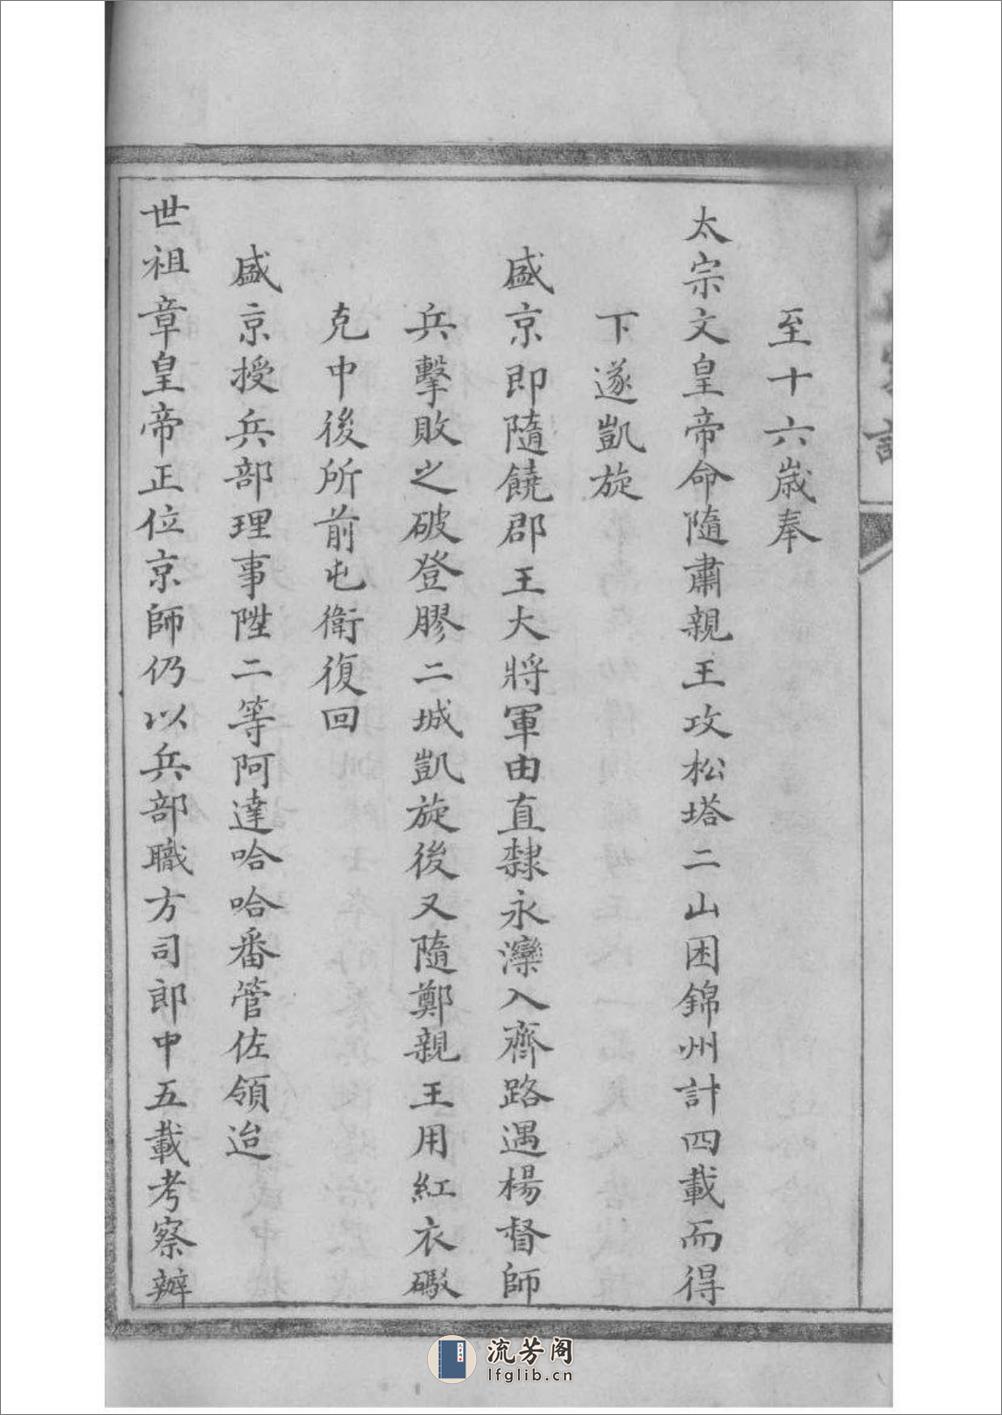 至十六歲奉
太宗文皇帝命隨肅親王攻松塔二山困錦州計四載而得
下遂凱旋
盛京即隨饒郡王大將軍由直隸永灤入齊路遇楊督師
兵擊敗之破登膠二城凱旋後又隨鄭親王用紅衣礮
克中後所前屯衛復回
盛京授兵部理事陞二等阿達哈哈番管佐領迨
世祖章皇帝正位京師仍以兵部職方司郎中五載考察辦
流芳阁
lfglib.cn